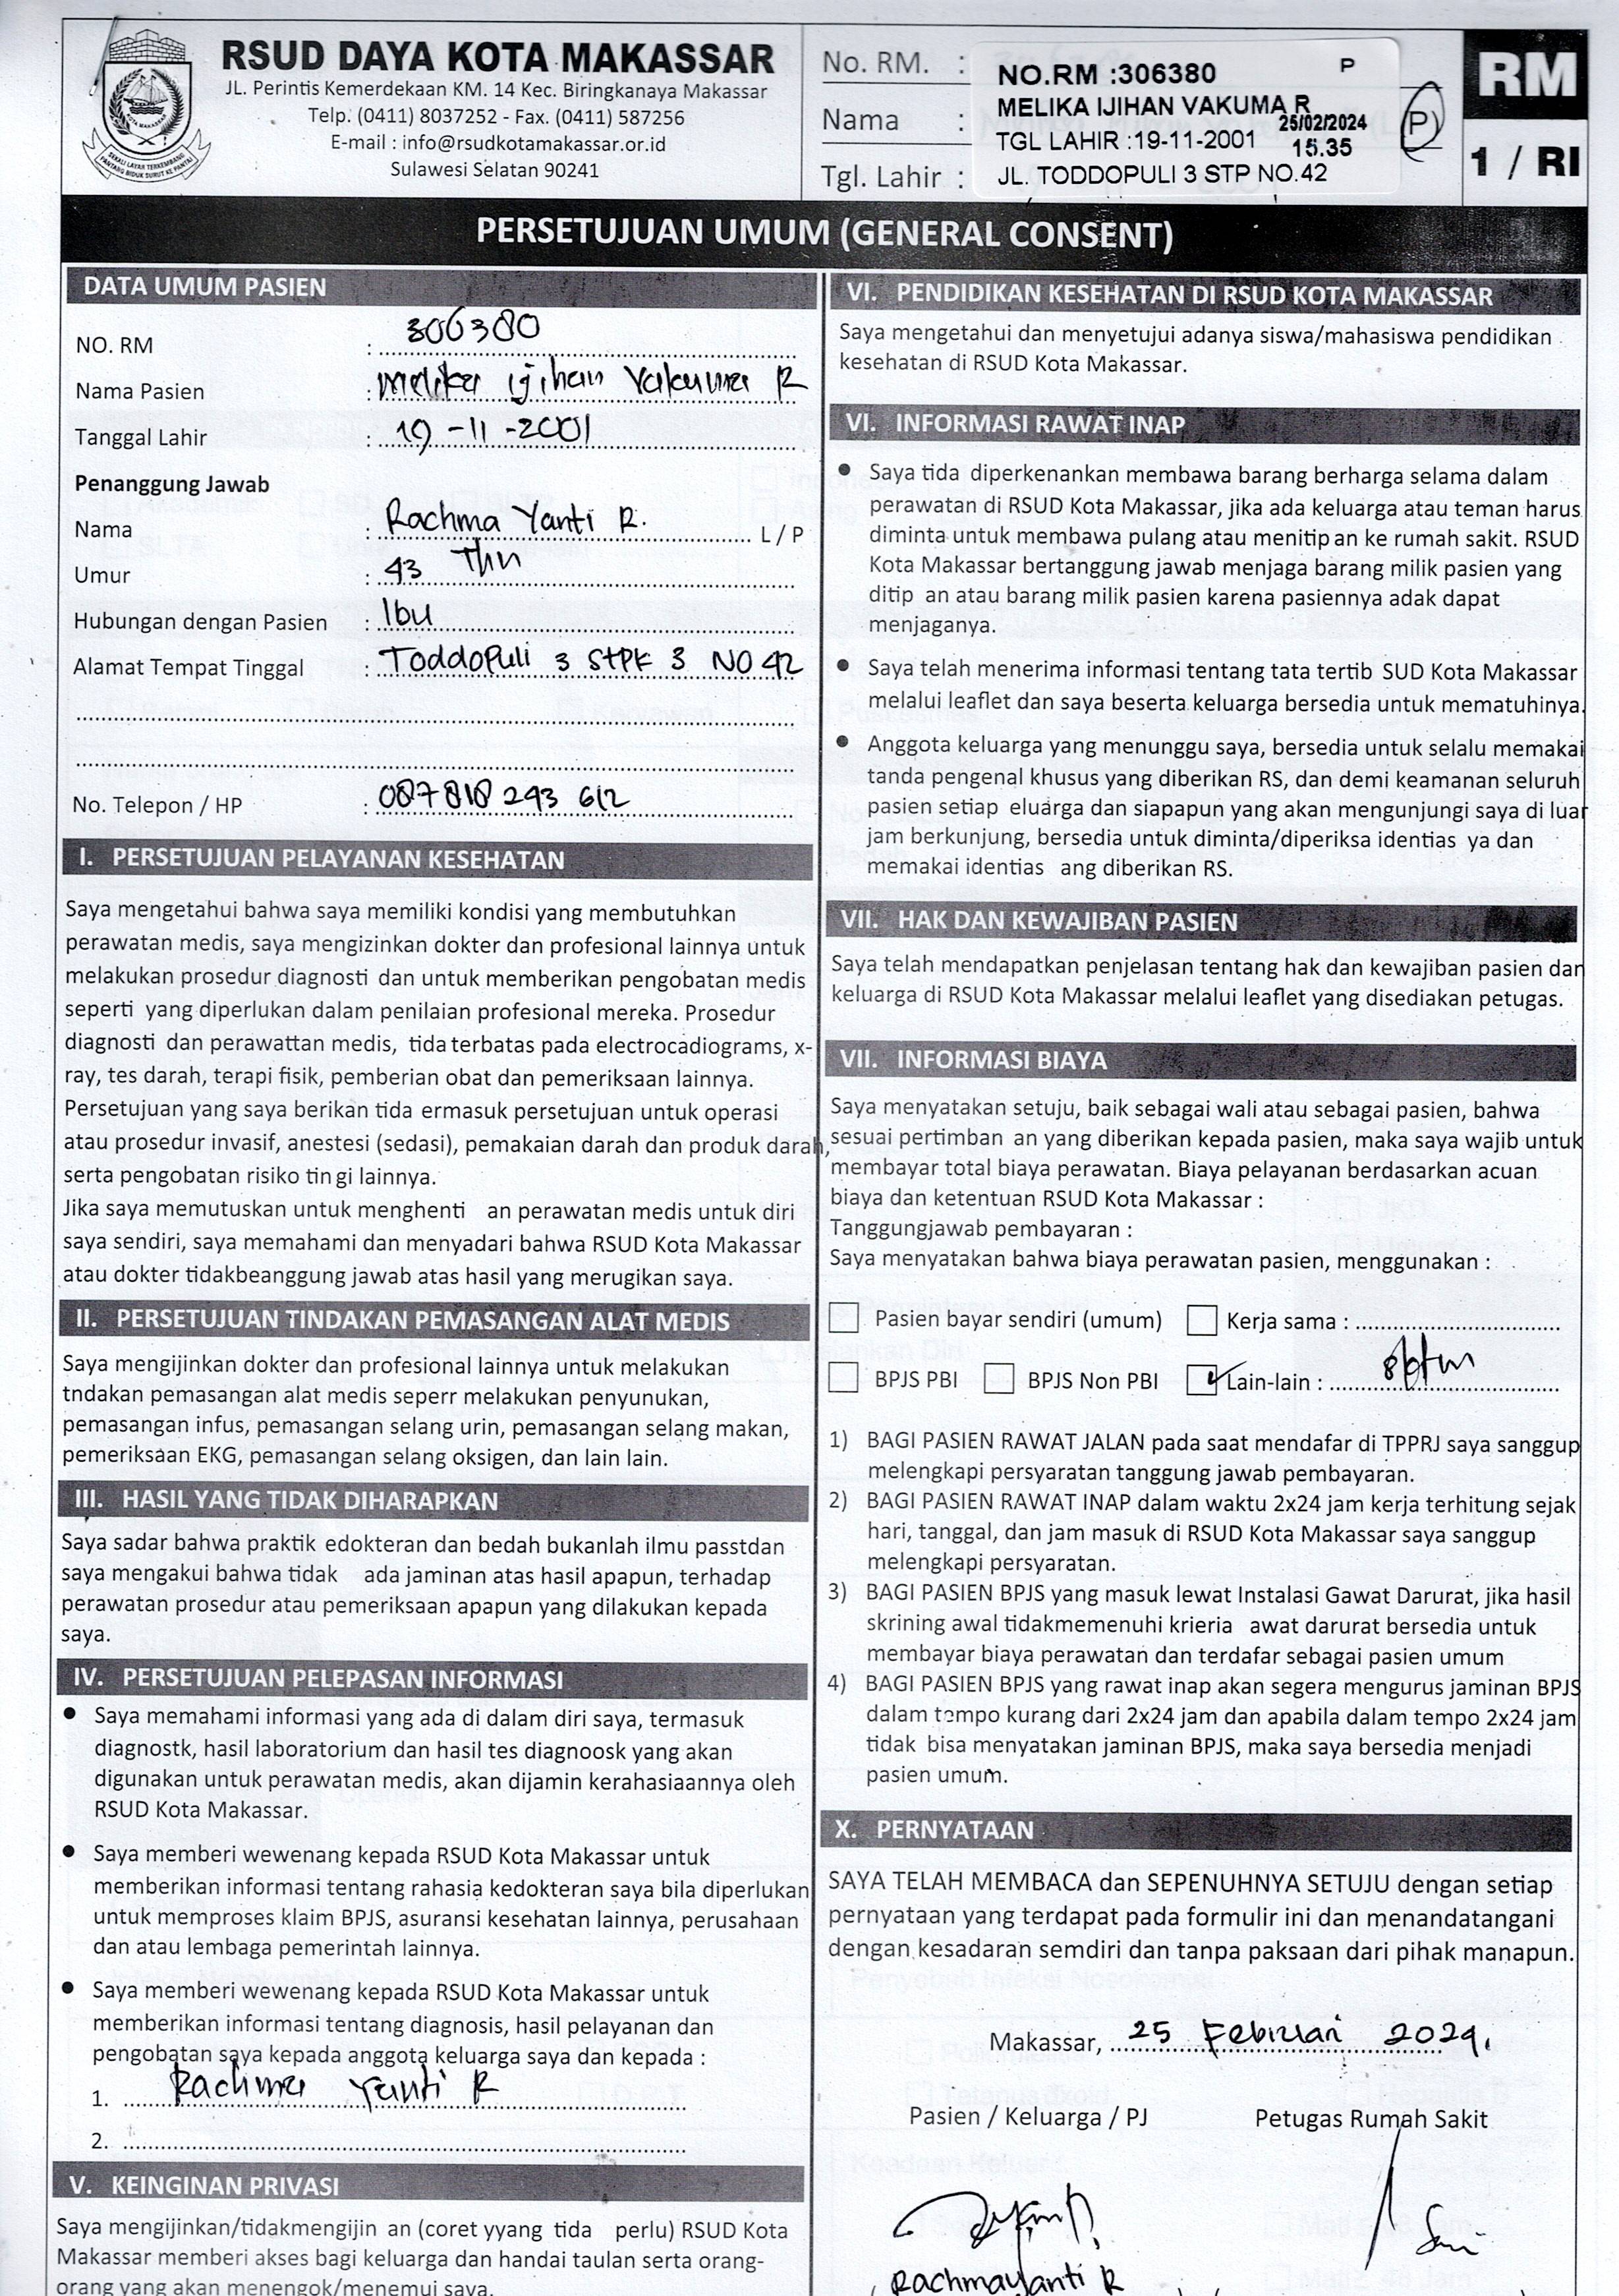 RSUD DAYA KOTA MAKASSAR
JL. Perintis Kemerdekaan KM. 14 Kec. Biringkanaya Makassar
Telp. (0411) 8037252 - Fax. (0411) 587256
E-mail : info@rsudkotamakassar.or.id
Sulawesi Selatan 90241
KOTA MAKASSAR
No. RM. :
Nama :
Tgl. Lahir :
NO.RM :306380 P
MELIKA IJIHAN VAKUMA R
25/02/2024
TGL LAHIR :19-11-2001 15.35
JL. TODDOPULI 3 STP NO.42
P)
RM
1 / RI
PERSETUJUAN UMUM (GENERAL CONSENT)
DATA UMUM PASIEN
NO. RM : 306380
Nama Pasien : Melika ijihan Vakuma R
Tanggal Lahir : 19-11-2001
Penanggung Jawab
Nama : Rachma Yanti R. L / P
Umur : 43 Thn
Hubungan dengan Pasien : Ibu
Alamat Tempat Tinggal : Toddopuli 3 StPK 3 NO 42
No. Telepon / HP : 087 818 243 612
I. PERSETUJUAN PELAYANAN KESEHATAN
Saya mengetahui bahwa saya memiliki kondisi yang membutuhkan
perawatan medis, saya mengizinkan dokter dan profesional lainnya untuk
melakukan prosedur diagnosti dan untuk memberikan pengobatan medis
seperti yang diperlukan dalam penilaian profesional mereka. Prosedur
diagnosti dan perawattan medis, tida terbatas pada electrocadiograms, x-
ray, tes darah, terapi fisik, pemberian obat dan pemeriksaan lainnya.
Persetujuan yang saya berikan tida ermasuk persetujuan untuk operasi
atau prosedur invasif, anestesi (sedasi), pemakaian darah dan produk darah,
serta pengobatan risiko tin gi lainnya.
Jika saya memutuskan untuk menghenti an perawatan medis untuk diri
saya sendiri, saya memahami dan menyadari bahwa RSUD Kota Makassar
atau dokter tidakbeanggung jawab atas hasil yang merugikan saya.
II. PERSETUJUAN TINDAKAN PEMASANGAN ALAT MEDIS
Saya mengijinkan dokter dan profesional lainnya untuk melakukan
tndakan pemasangan alat medis seperr melakukan penyunukan,
pemasangan infus, pemasangan selang urin, pemasangan selang makan,
pemeriksaan EKG, pemasangan selang oksigen, dan lain lain.
III. HASIL YANG TIDAK DIHARAPKAN
Saya sadar bahwa praktik edokteran dan bedah bukanlah ilmu passtdan
saya mengakui bahwa tidak ada jaminan atas hasil apapun, terhadap
perawatan prosedur atau pemeriksaan apapun yang dilakukan kepada
saya.
IV. PERSETUJUAN PELEPASAN INFORMASI
• Saya memahami informasi yang ada di dalam diri saya, termasuk
diagnostk, hasil laboratorium dan hasil tes diagnoosk yang akan
digunakan untuk perawatan medis, akan dijamin kerahasiaannya oleh
RSUD Kota Makassar.
• Saya memberi wewenang kepada RSUD Kota Makassar untuk
memberikan informasi tentang rahasia kedokteran saya bila diperlukan
untuk memproses klaim BPJS, asuransi kesehatan lainnya, perusahaan
dan atau lembaga pemerintah lainnya.
• Saya memberi wewenang kepada RSUD Kota Makassar untuk
memberikan informasi tentang diagnosis, hasil pelayanan dan
pengobatan saya kepada anggota keluarga saya dan kepada :
1. Rachma Yanti R
2.
V. KEINGINAN PRIVASI
Saya mengijinkan/tidakmengijin an (coret yyang tida perlu) RSUD Kota
Makassar memberi akses bagi keluarga dan handai taulan serta orang-
orang yang akan menengok/menemui saya.
VI. PENDIDIKAN KESEHATAN DI RSUD KOTA MAKASSAR
Saya mengetahui dan menyetujui adanya siswa/mahasiswa pendidikan
kesehatan di RSUD Kota Makassar.
VI. INFORMASI RAWAT INAP
• Saya tida diperkenankan membawa barang berharga selama dalam
perawatan di RSUD Kota Makassar, jika ada keluarga atau teman harus
diminta untuk membawa pulang atau menitip an ke rumah sakit. RSUD
Kota Makassar bertanggung jawab menjaga barang milik pasien yang
ditip an atau barang milik pasien karena pasiennya adak dapat
menjaganya.
• Saya telah menerima informasi tentang tata tertib SUD Kota Makassar
melalui leaflet dan saya beserta keluarga bersedia untuk mematuhinya.
• Anggota keluarga yang menunggu saya, bersedia untuk selalu memakai
tanda pengenal khusus yang diberikan RS, dan demi keamanan seluruh
pasien setiap eluarga dan siapapun yang akan mengunjungi saya di luar
jam berkunjung, bersedia untuk diminta/diperiksa identias ya dan
memakai identias ang diberikan RS.
VII. HAK DAN KEWAJIBAN PASIEN
Saya telah mendapatkan penjelasan tentang hak dan kewajiban pasien dan
keluarga di RSUD Kota Makassar melalui leaflet yang disediakan petugas.
VII. INFORMASI BIAYA
Saya menyatakan setuju, baik sebagai wali atau sebagai pasien, bahwa
sesuai pertimban an yang diberikan kepada pasien, maka saya wajib untuk
membayar total biaya perawatan. Biaya pelayanan berdasarkan acuan
biaya dan ketentuan RSUD Kota Makassar :
Tanggungjawab pembayaran :
Saya menyatakan bahwa biaya perawatan pasien, menggunakan :
Pasien bayar sendiri (umum) Kerja sama :
BPJS PBI BPJS Non PBI Lain-lain :
1) BAGI PASIEN RAWAT JALAN pada saat mendafar di TPPRJ saya sanggup
melengkapi persyaratan tanggung jawab pembayaran.
2) BAGI PASIEN RAWAT INAP dalam waktu 2x24 jam kerja terhitung sejak
hari, tanggal, dan jam masuk di RSUD Kota Makassar saya sanggup
melengkapi persyaratan.
3) BAGI PASIEN BPJS yang masuk lewat Instalasi Gawat Darurat, jika hasil
skrining awal tidakmemenuhi krieria awat darurat bersedia untuk
membayar biaya perawatan dan terdafar sebagai pasien umum
4) BAGI PASIEN BPJS yang rawat inap akan segera mengurus jaminan BPJS
dalam tempo kurang dari 2x24 jam dan apabila dalam tempo 2x24 jam
tidak bisa menyatakan jaminan BPJS, maka saya bersedia menjadi
pasien umum.
X. PERNYATAAN
SAYA TELAH MEMBACA dan SEPENUHNYA SETUJU dengan setiap
pernyataan yang terdapat pada formulir ini dan menandatangani
dengan kesadaran semdiri dan tanpa paksaan dari pihak manapun.
Makassar, 25 Februari 2024.
Pasien / Keluarga / PJ Petugas Rumah Sakit
Rachmayanti R